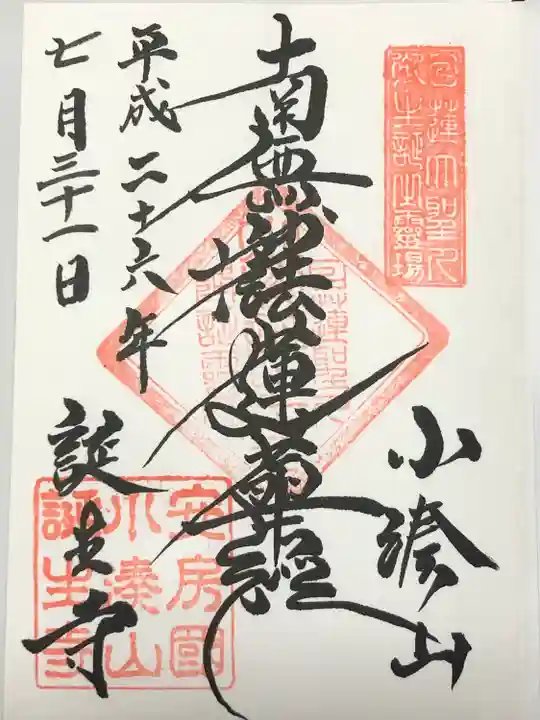 日蓮大聖人
御生誕之霊場
小湊山
南無妙法蓮華経
平成二十六年
七月三十一日
誕生寺
安房國
小湊山
誕生寺